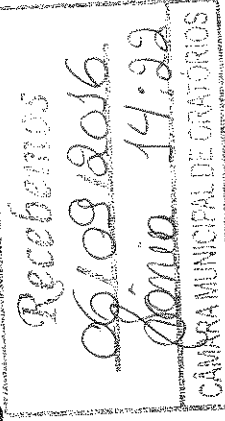 Recebemos
06/09/2016
Jânia 14:22
CÂMARA MUNICIPAL DE ORATÓRIOS